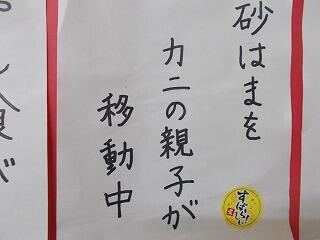 砂はまを
カニの親子が
移動中
すばらしい